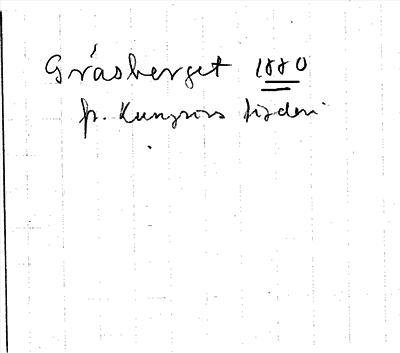 Gråsberget 1880
fr. Kungsörs